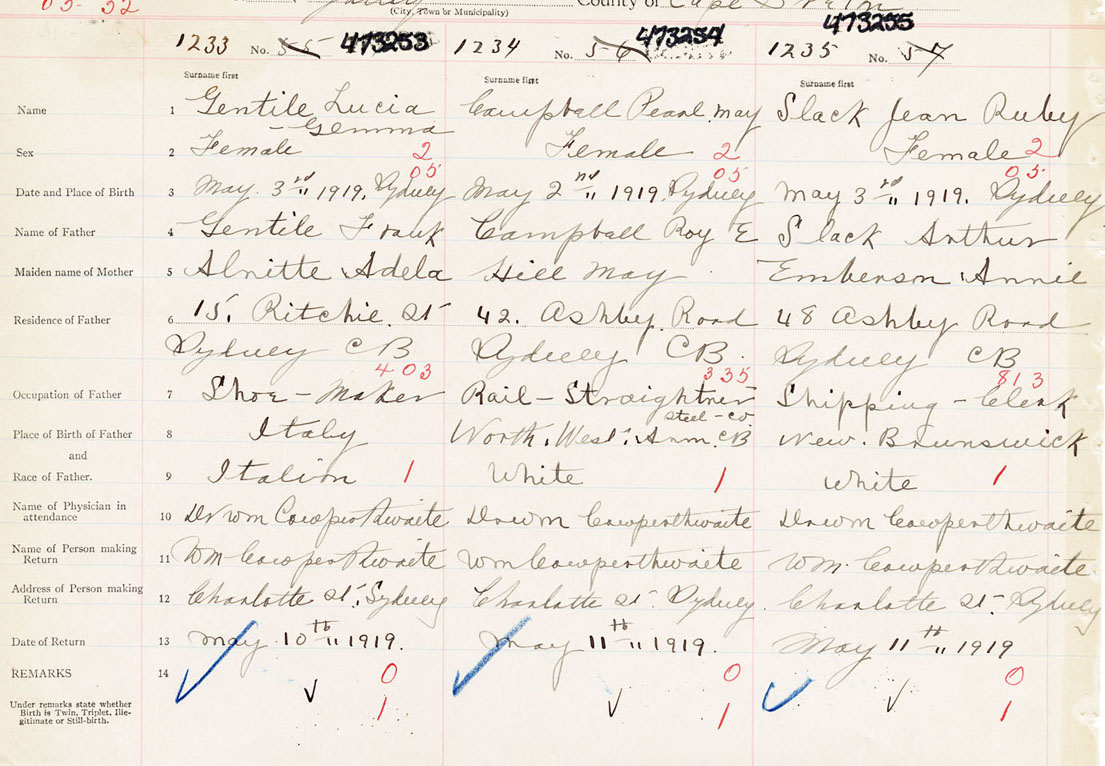 05-52 Sydney (City, Town or Municipality) County of Cape Breton
1233 No. 55 473253 1234 No. 56 473254 1235 No. 57 473255
Surname first Surname first Surname first
Name 1 Gentile Lucia Campball Pearl May Slack Jean Ruby
- Gemma
Sex 2 Female 2 Female 2 Female 2
05 05 05
Date and Place of Birth 3 May 3rd 1919. Sydney May 2nd 1919. Sydney May 3rd 1919. Sydney
Name of Father 4 Gentile Frank Campball Roy E Slack Arthur
Maiden name of Mother 5 Alnitte Adela Hill May Emberson Annie
Residence of Father 6 15. Ritchie St 42. Ashby Road 48 Ashby Road
Sydney CB Sydney CB. Sydney CB
403 335 813
Occupation of Father 7 Shoe-Maker Rail-Straightner Shipping-Clerk
steel-co
Place of Birth of Father 8 Italy North. West. Arm. CB New. Brunswick
and
Race of Father. 9 Italian 1 White 1 White 1
Name of Physician in
attendance 10 Dr Wm Cowperthwaite Dr Wm Cowperthwaite Dr Wm Cowperthwaite
Name of Person making
Return 11 Wm Cowperthwaite Wm Cowperthwaite Wm. Cowperthwaite
Address of Person making
Return 12 Charlotte St. Sydney Charlotte St. Sydney Charlotte St. Sydney
Date of Return 13 May 10th 1919. May 11th 1919. May 11th 1919
REMARKS 14 0 0 0
Under remarks state whether
Birth is Twin, Triplet, Ille-
gitimate or Still-birth. 1 1 1